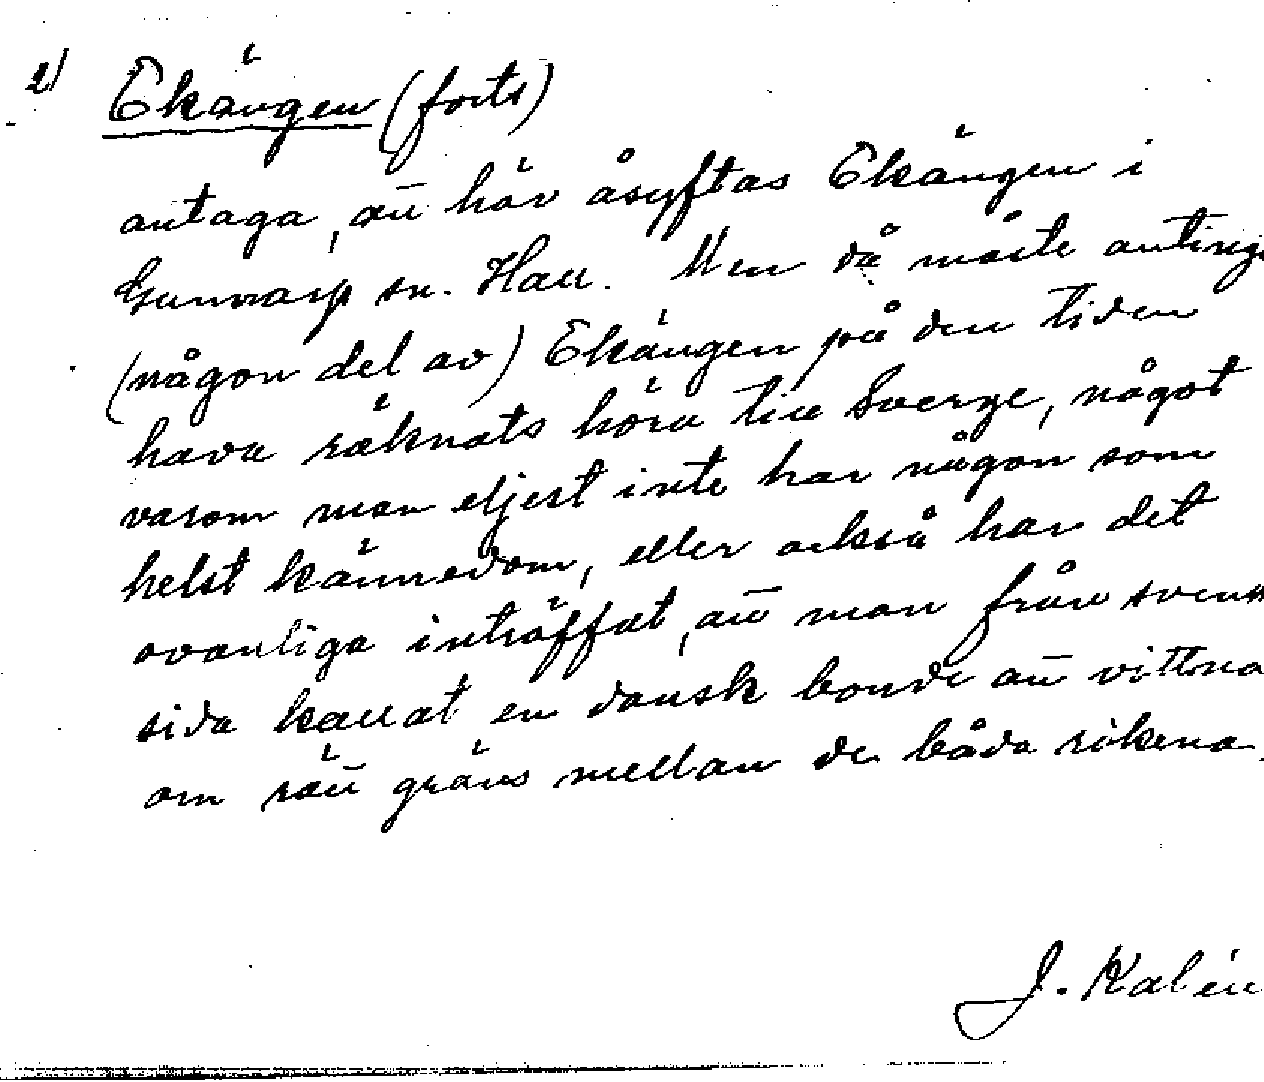 2) Ekängen (forts)
antaga, att här åsyftas Ekängen i
Gunnarp sn. Hall. Men då måste antinge
(någon del av) Ekängen på den tiden
hava räknats höra till Sverge, något
varom man eljest inte har någon som
helst kännedom, eller också har det
ovanliga inträffat, att man från svensk
sida kallat en dansk bonde att vittna
om rätt gräns mellan de båda rikena.
J. Kalén